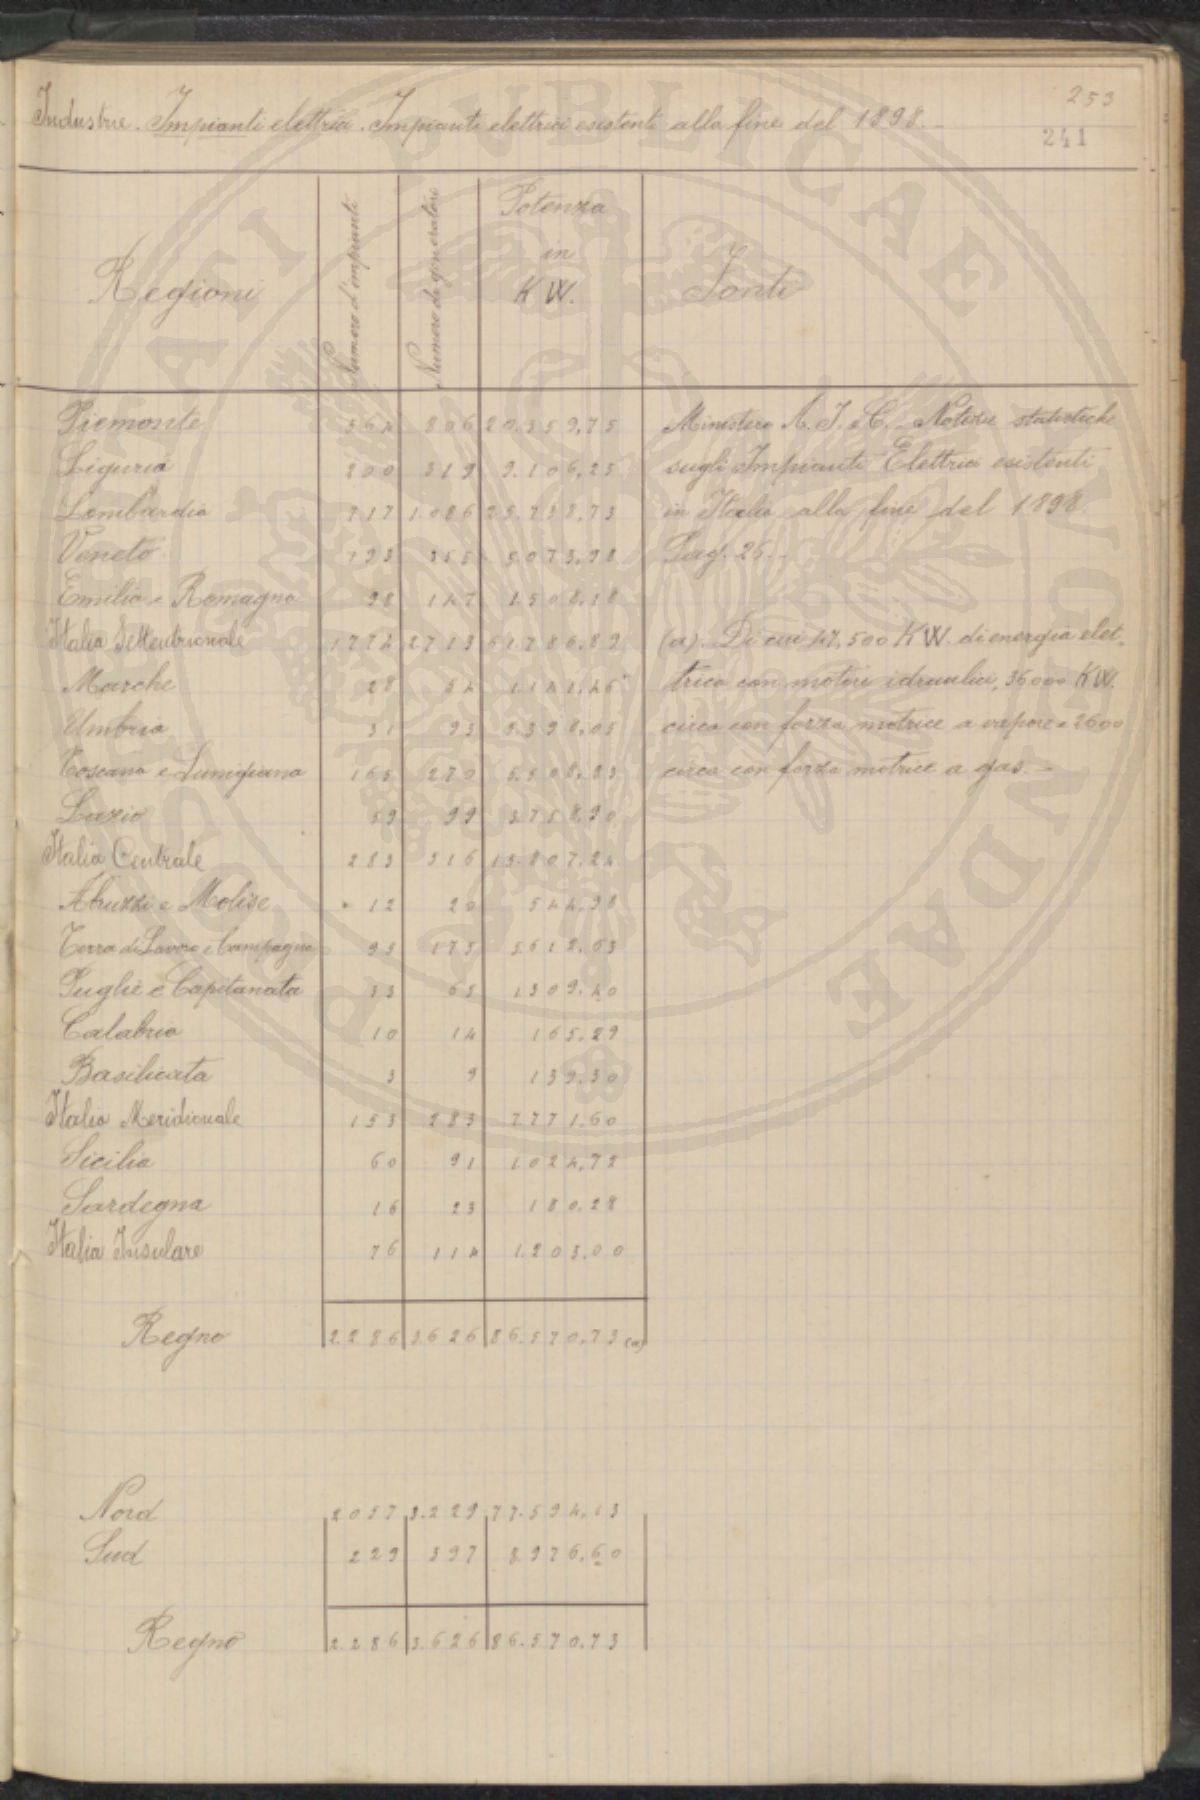 253
Industrie. Impianti elettrici. Impianti elettrici esistenti alla fine del 1898.-
241
Regioni Numero d'impianti Numero di generatori Potenza in KW. Fonti
Piemonte 564 806 20.359,75 Ministero A. I. e C. - Notizie statistiche
Liguria 200 319 9.106,25 sugli Impianti Elettrici esistenti
Lombardia 717 1.086 25.738,73 in Italia alla fine del 1898
Veneto 195 355 5.073,98 Pag. 26.-
Emilia e Romagna 98 147 1.508,18
Italia Settentrionale 1774 2713 61.786,89 (a). Di cui 47,500 KW. di energia elet-
Marche 28 54 1.141,46 trica con motori idraulici, 36000 KW.
Umbria 31 93 5.398,05 circa con forza motrice a vapore e 2600
Toscana e Lunigiana 165 270 5.508,83 circa con forza motrice a gas.-
Lazio 59 99 3758,90
Italia Centrale 283 516 15.807,24
Abruzzi e Molise 12 20 544,98
Terra di Lavoro e Campagna 95 175 5612,63
Puglie e Capitanata 33 65 1.309,40
Calabria 10 14 165,29
Basilicata 3 9 139,30
Italia Meridionale 153 283 7.771,60
Sicilia 60 91 1.024,72
Sardegna 16 23 180,28
Italia Insulare 76 114 1.205,00
Regno 2.286 3626 86.570,73 (a)
Nord 2057 3.229 77.594,13
Sud 229 397 8976,60
Regno 2.286 3.626 86.570,73
POTESTATI PUBLICAE IUNGENDAE